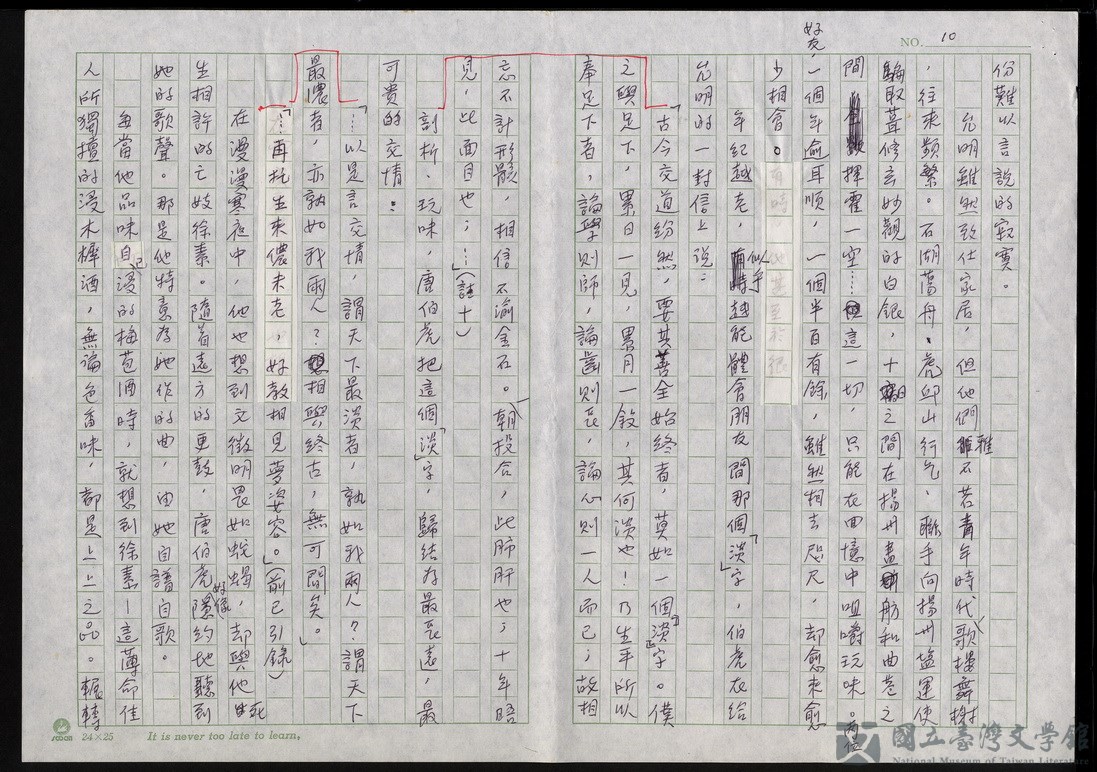 NO. 10
份難以言說的寂寞。
允明雖然致仕家居，但他們雖不若青年時代歌樓舞榭
，往來頻繁。石湖蕩舟、虎邱山行乞、聯手向揚州塩運使
騙取葺修玄妙觀的白銀，十朝之間在揚州畫舫和曲巷之
間揮霍一空……這一切，只能在回憶中咀嚼玩味。兩位
好友，一個年逾耳順，一個半百有餘，雖然相去咫尺，却愈來愈
少相會。
年紀越老，似乎越能體會朋友間那個「淡」字，伯虎在給
允明的一封信上說：
「古今交道紛然，要其善全始終者，莫如一個「淡」字。僕
之與足下，累日一見，累月一敘，其何淡也！乃生平所以
奉足下者，論學則師，論齒則長，論心則一人而已；故相
忘不計形骸，相信不渝金石。一朝投合，此肺肝也；十年晤
見，此面目也；…」(註十)
剖析、玩味，唐伯虎把這個「淡」字，歸結為最長遠，最
可貴的交情：
「…以是言交情，謂天下最淡者，孰如我兩人？謂天下
最濃者，亦孰如我兩人？想相與終古，無可間矣。」
「…再托生來儂未老，好教相見夢姿容。」(前已引錄)
在漫漫寒夜中，他也想到文徵明畏如蛇蝎，却與他死
生相許的亡妓徐素。隨着遠方的更鼓，唐伯虎好像隱約地聽到
她的歌聲。那是他特意為她作的曲，由她自譜自歌。
每當他品味自己浸的梅苞酒時，就想到徐素—這薄命佳
人所獨擅的浸木樨酒，無論色香味，都是上上之品。輾轉
24×25
It is never too late to learn,
國立臺灣文學館
National Museum of Taiwan Literature